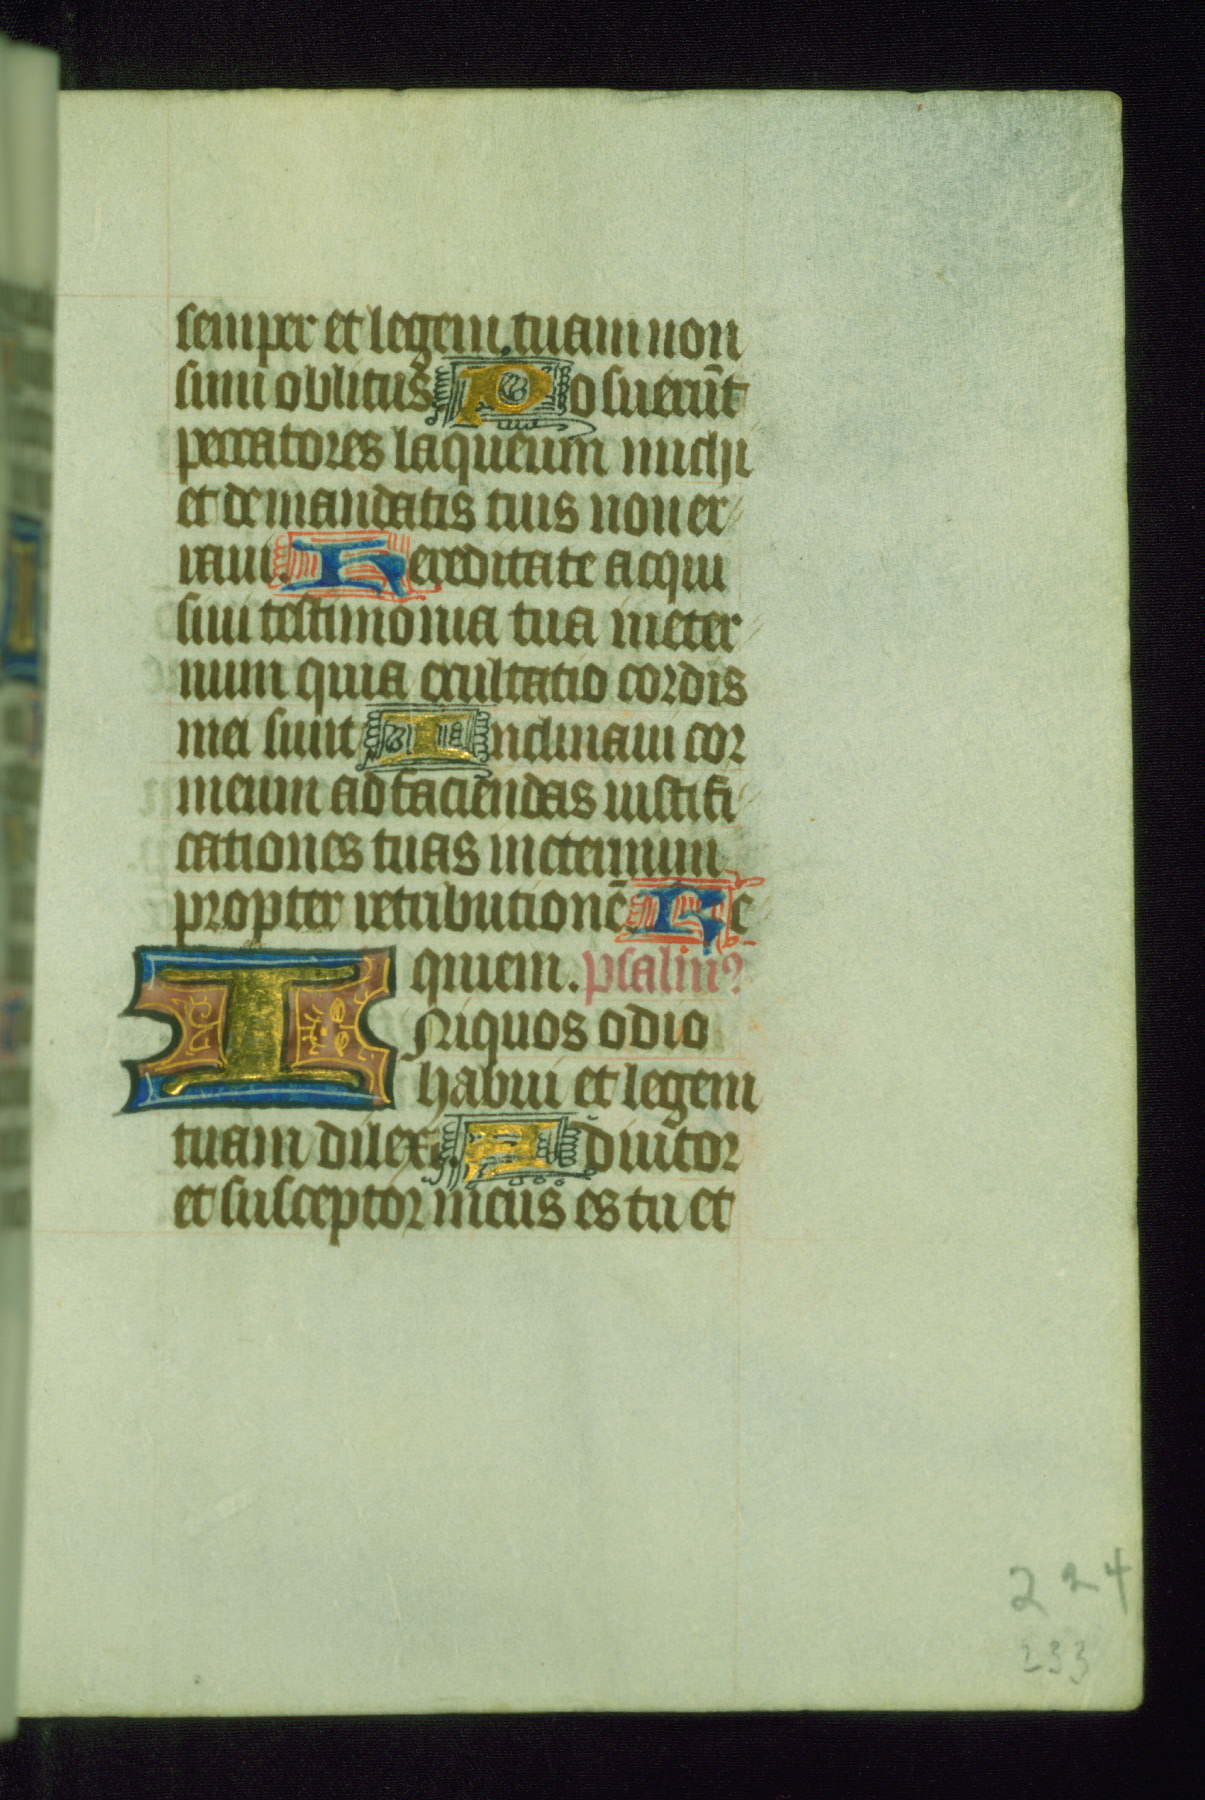 semper et legem tuam non
sum oblitus Posuerūt
peccatores laqueum michi
et de mandatis tuis non er
raui. Hereditate acqui
siui testimonia tua in eter
num quia exultatio cordis
mei sunt Inclinaui cor
meum ad faciendas iustifi
cationes tuas in eternum
propter retributionē. Re
quiem. psalmꝰ
INiquos odio
habui et legem
tuam dilexi. Adiutor
et susceptor meus es tu et
224
233